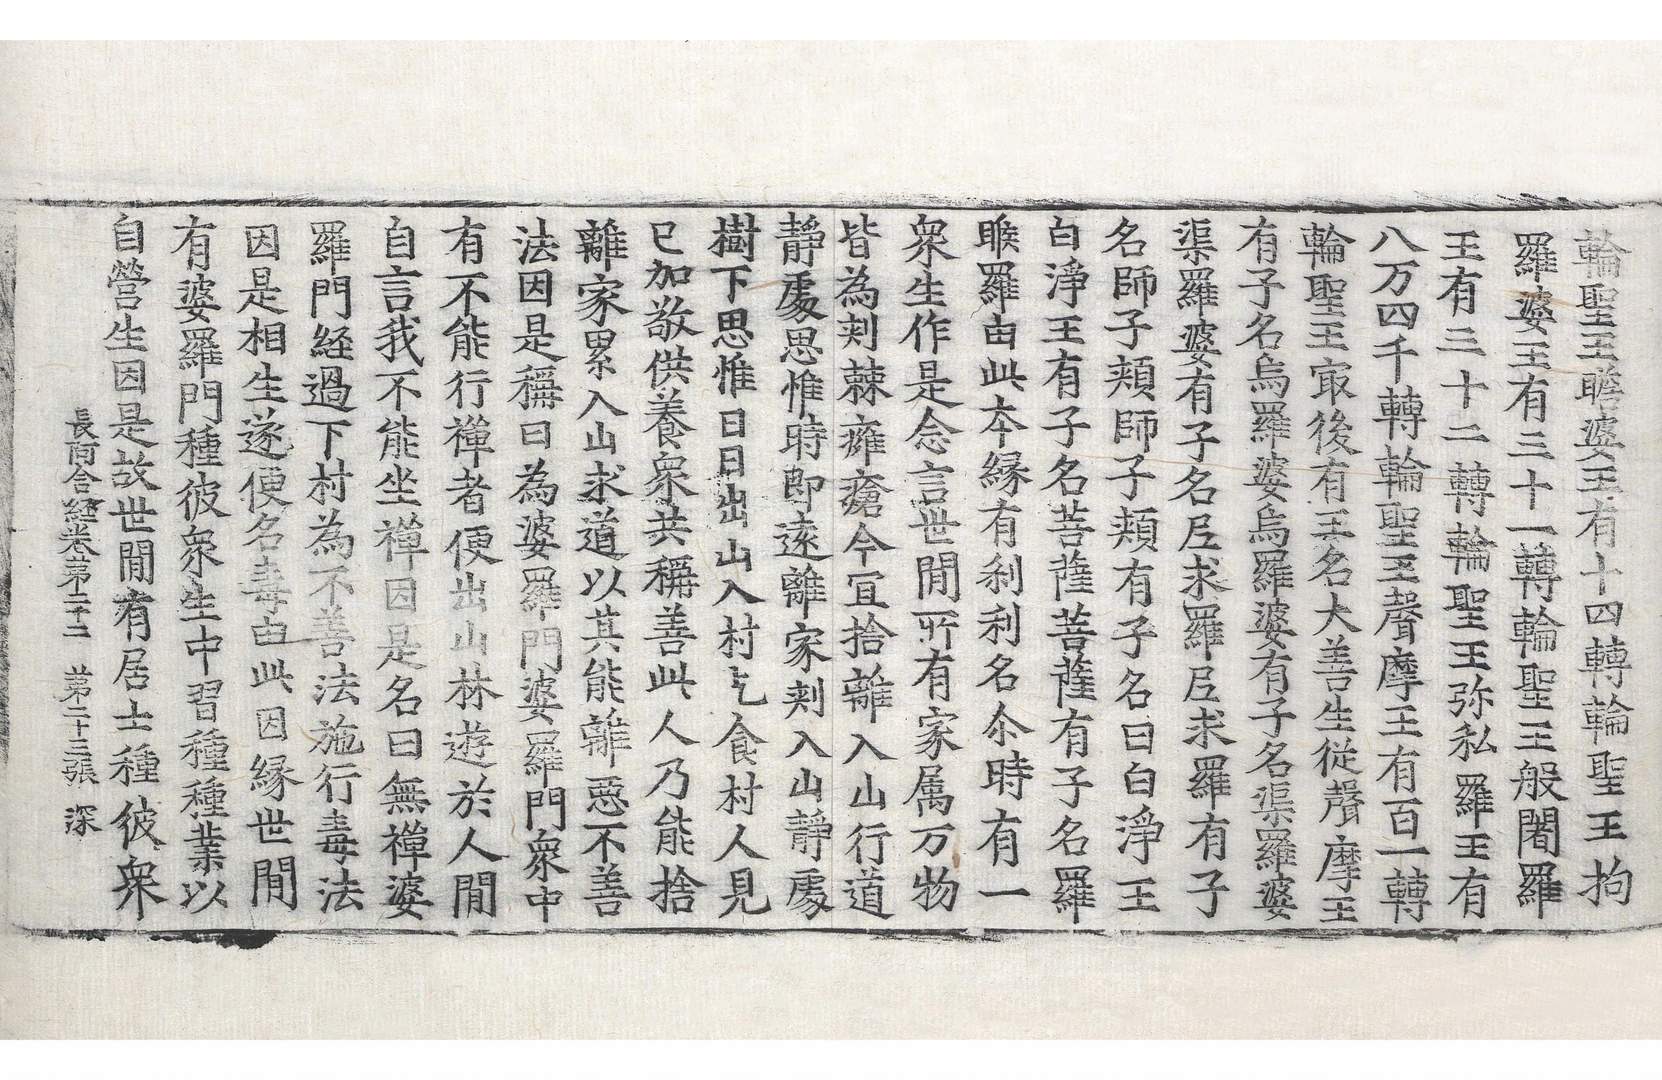 輪聖王瞻婆王有十四轉輪聖王拘
羅婆王有三十一轉輪聖王般闍羅
王有三十二轉輪聖王弥私羅王有
八万四千轉輪聖王聲摩王有百一轉
輪聖王㝡後有王名大善生從聲摩王
有子名烏羅婆烏羅婆有子名渠羅婆
渠羅婆有子名尼求羅尼求羅有子
名師子頰師子頰有子名曰白淨王
白淨王有子名菩薩菩薩有子名羅
睺羅由此本縁有刹利名尒時有一
衆生作是念言世間所有家属万物
皆為刾棘癰瘡今宜捨離入山行道
靜處思惟時即遠離家刾入山靜處
樹下思惟日日出山入村乞食村人見
已加敬供養衆共稱善此人乃能捨
離家累入山求道以其能離惡不善
法因是稱曰為婆羅門婆羅門衆中
有不能行禅者便出山林遊於人間
自言我不能坐禅因是名曰無禅婆
羅門経過下村為不善法施行毒法
因是相生遂便名毒由此因縁世間
有婆羅門種彼衆生中習種種業以
自營生因是故世間有居士種彼衆
長阿含經卷第二十二　第二十三張　深